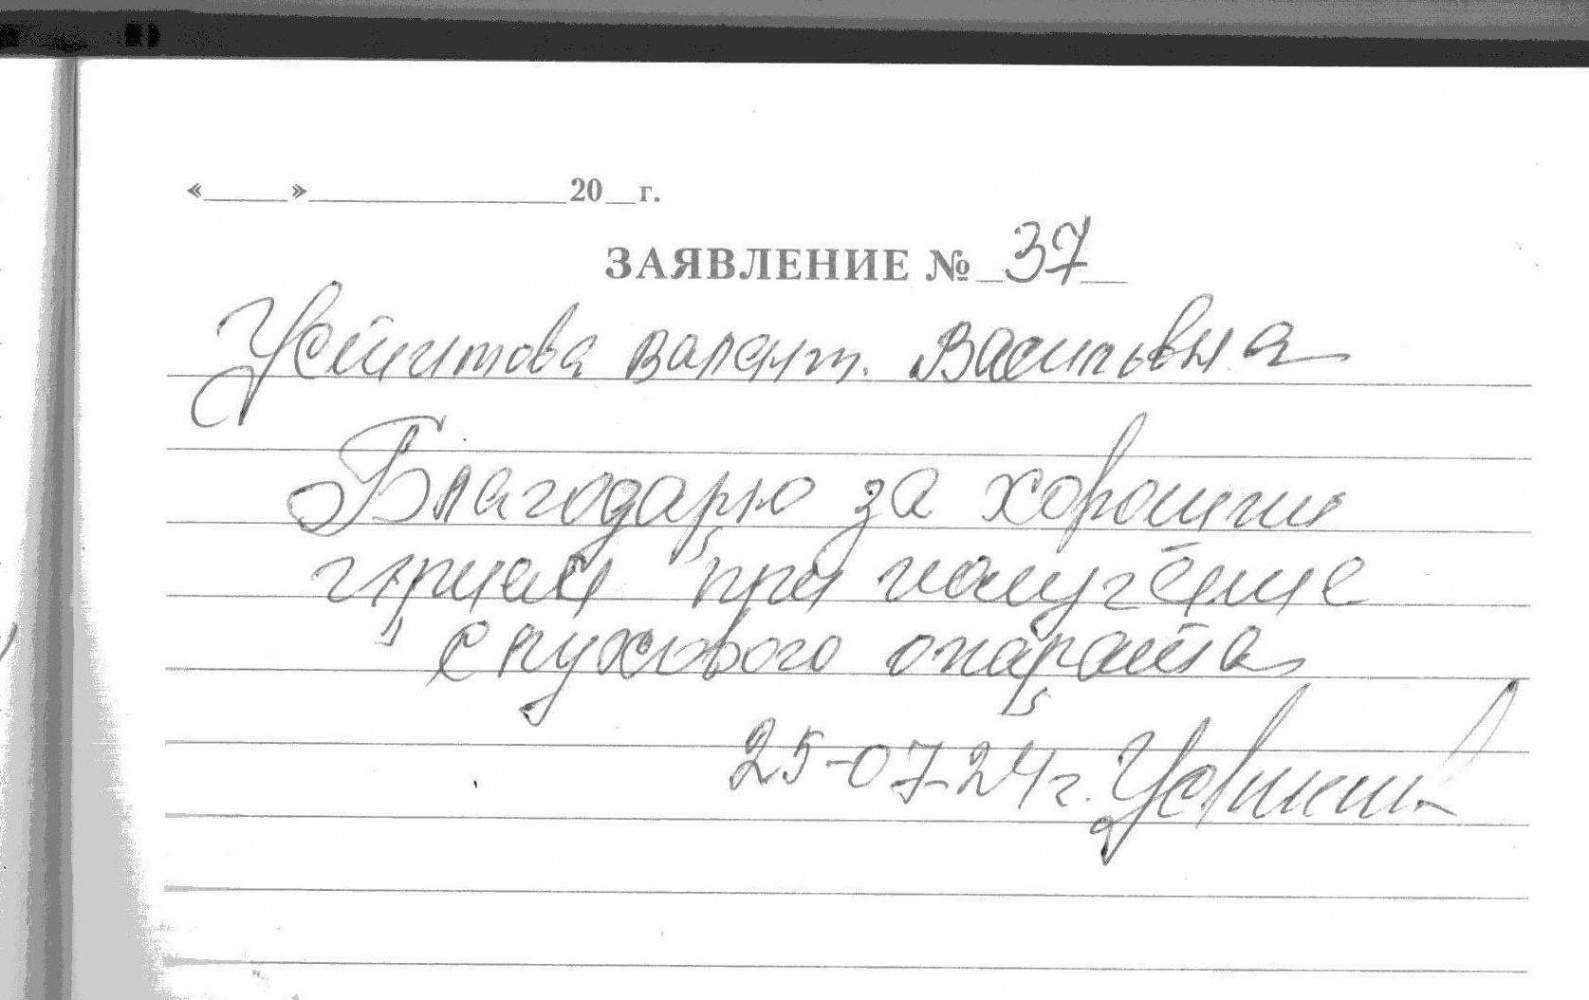 «____»______________20__г.
ЗАЯВЛЕНИЕ № 37
Валент. Васильевна
Благодарю за хороший
прием при получение
слухового опарата
25-07-24г.